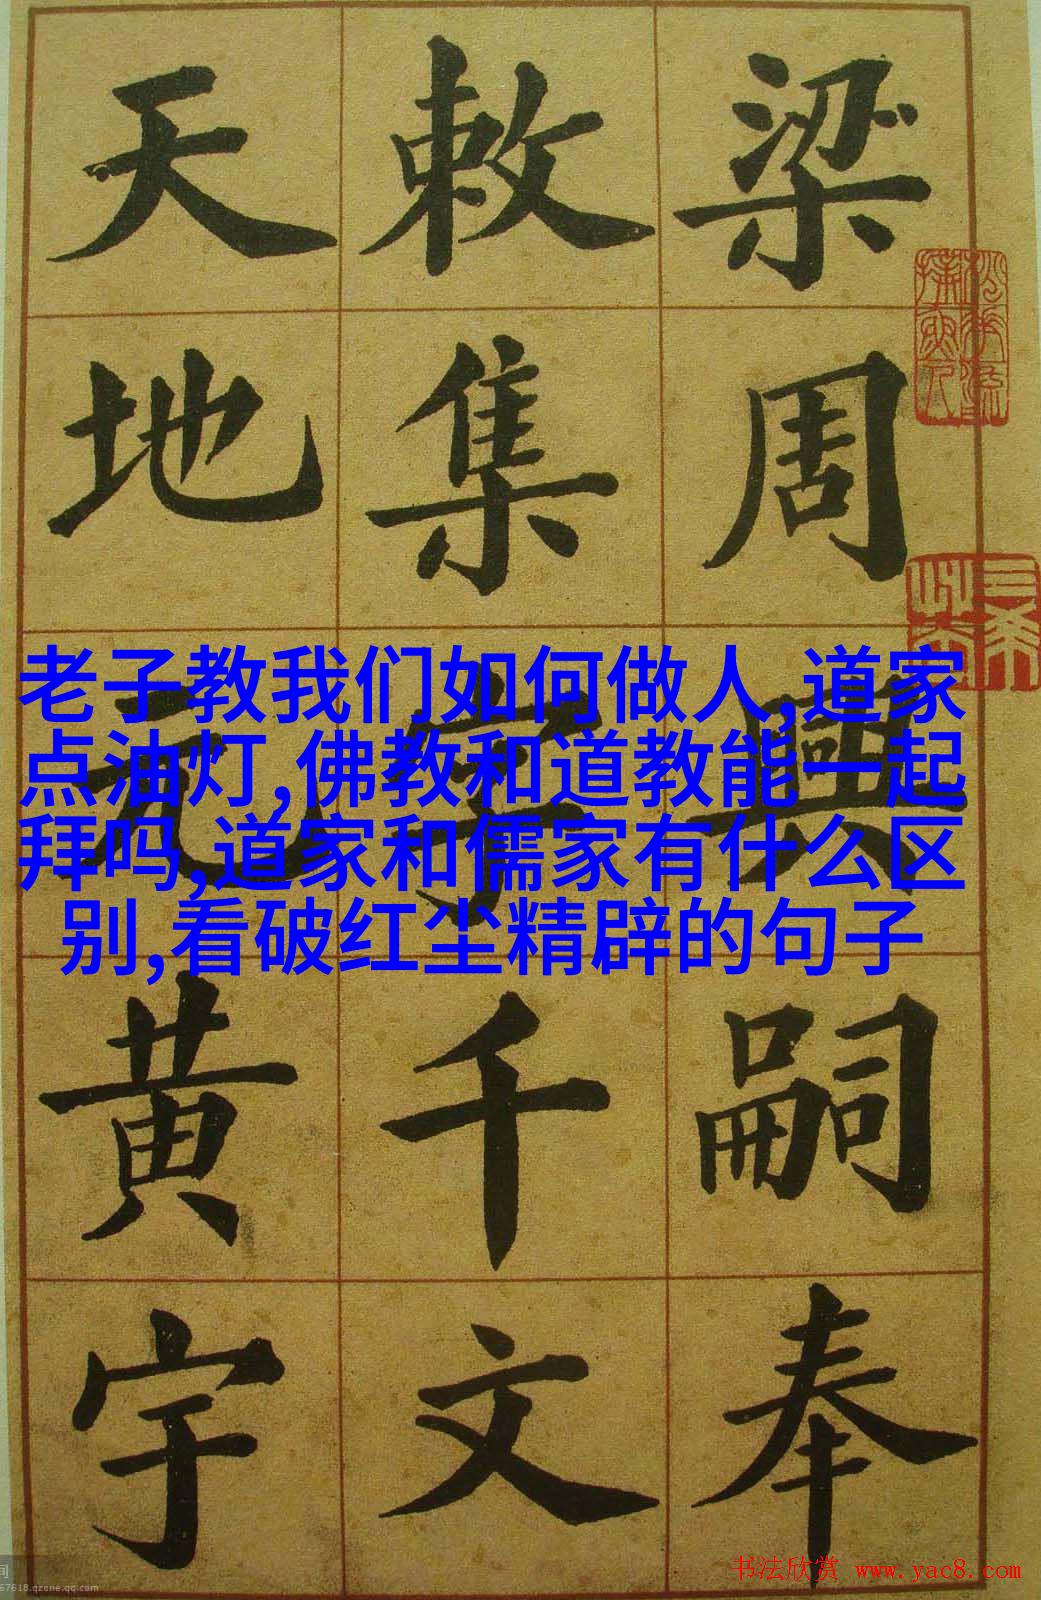 梁周興嗣奉
敕集字千文
天地元黄宇
老子教我们如何做人,道家
点油灯,佛教和道教能一起
拜吗,道家和儒家有什么区
别,看破红尘精辟的句子
间
67618.qzone.qq.com
书法欣赏 www.yac8.com